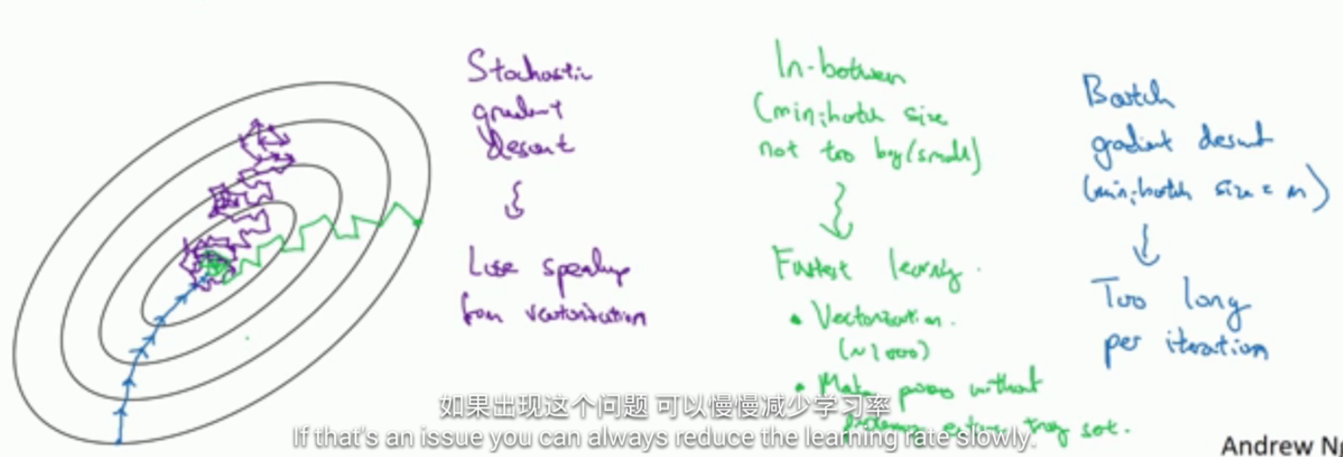 Stochastic
gradient
descent
Lose speedup
from vectorization
In-between
(mini-batch size
not too big/small)
Fastest learning.
• Vectorization.
(~1000)
• Make progress without
entire set.
Batch
gradient descent
(mini-batch size = m)
Too long
per iteration
如果出现这个问题 可以慢慢减少学习率
If that's an issue you can always reduce the learning rate slowly.
Andrew Ng